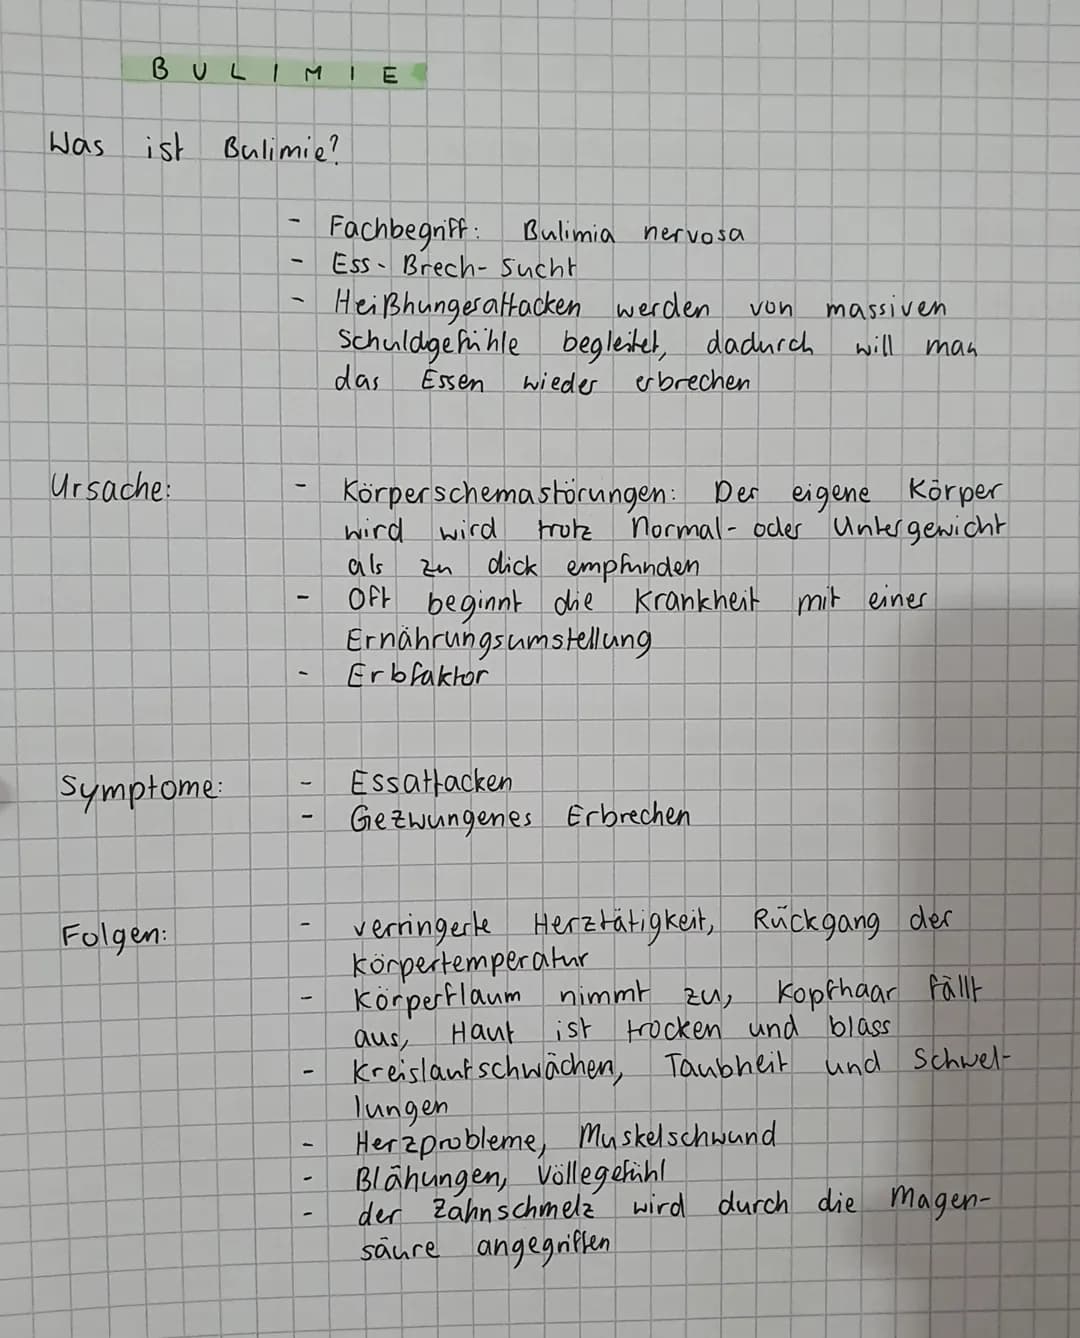 BULIMIE
Was ist Bulimie?
- Fachbegriff: Bulimia nervosa
- Ess-Brech-Sucht
- Heißhungerattacken werden von massiven
Schuldgefühle begleitet, dadurch will man
das Essen wieder erbrechen
Ursache: - Körperschemastörungen: Der eigene Körper
wird wird trotz Normal- oder Untergewicht
als zu dick empfunden
- Oft beginnt die Krankheit mit einer
Ernährungsumstellung
- Erbfaktor
Symptome: - Essattacken
- Gezwungenes Erbrechen
Folgen: - verringerte Herztätigkeit, Rückgang der
Körpertemperatur
- Körperflaum nimmt zu, Kopfhaar fällt
aus, Haut ist trocken und blass
- Kreislaufschwächen, Taubheit und Schwel-
lungen
- Herzprobleme, Muskelschwund
- Blähungen, Völlegefühl
- der Zahnschmelz wird durch die Magen-
säure angegriffen